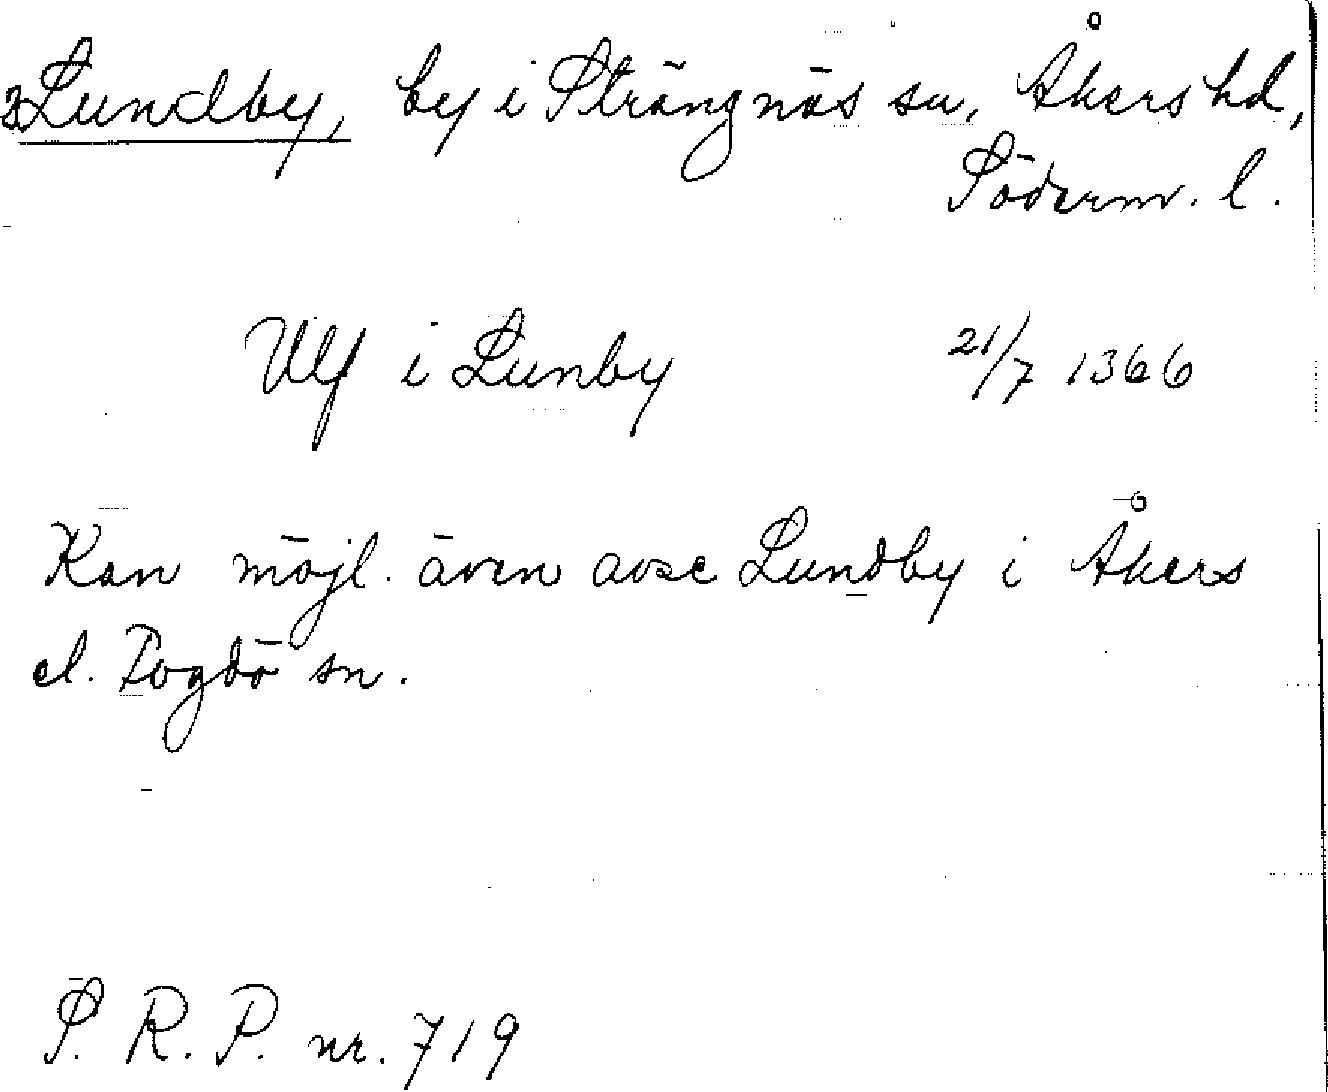 Lundby, by i Strängnäs sn, Åkers hd,
Söderm. l.
Ulf i Lunby 21/7 1366
Kan möjl. även avse Lundby i Åkers
el. Fogdö sn.
S. R. P. nr. 719